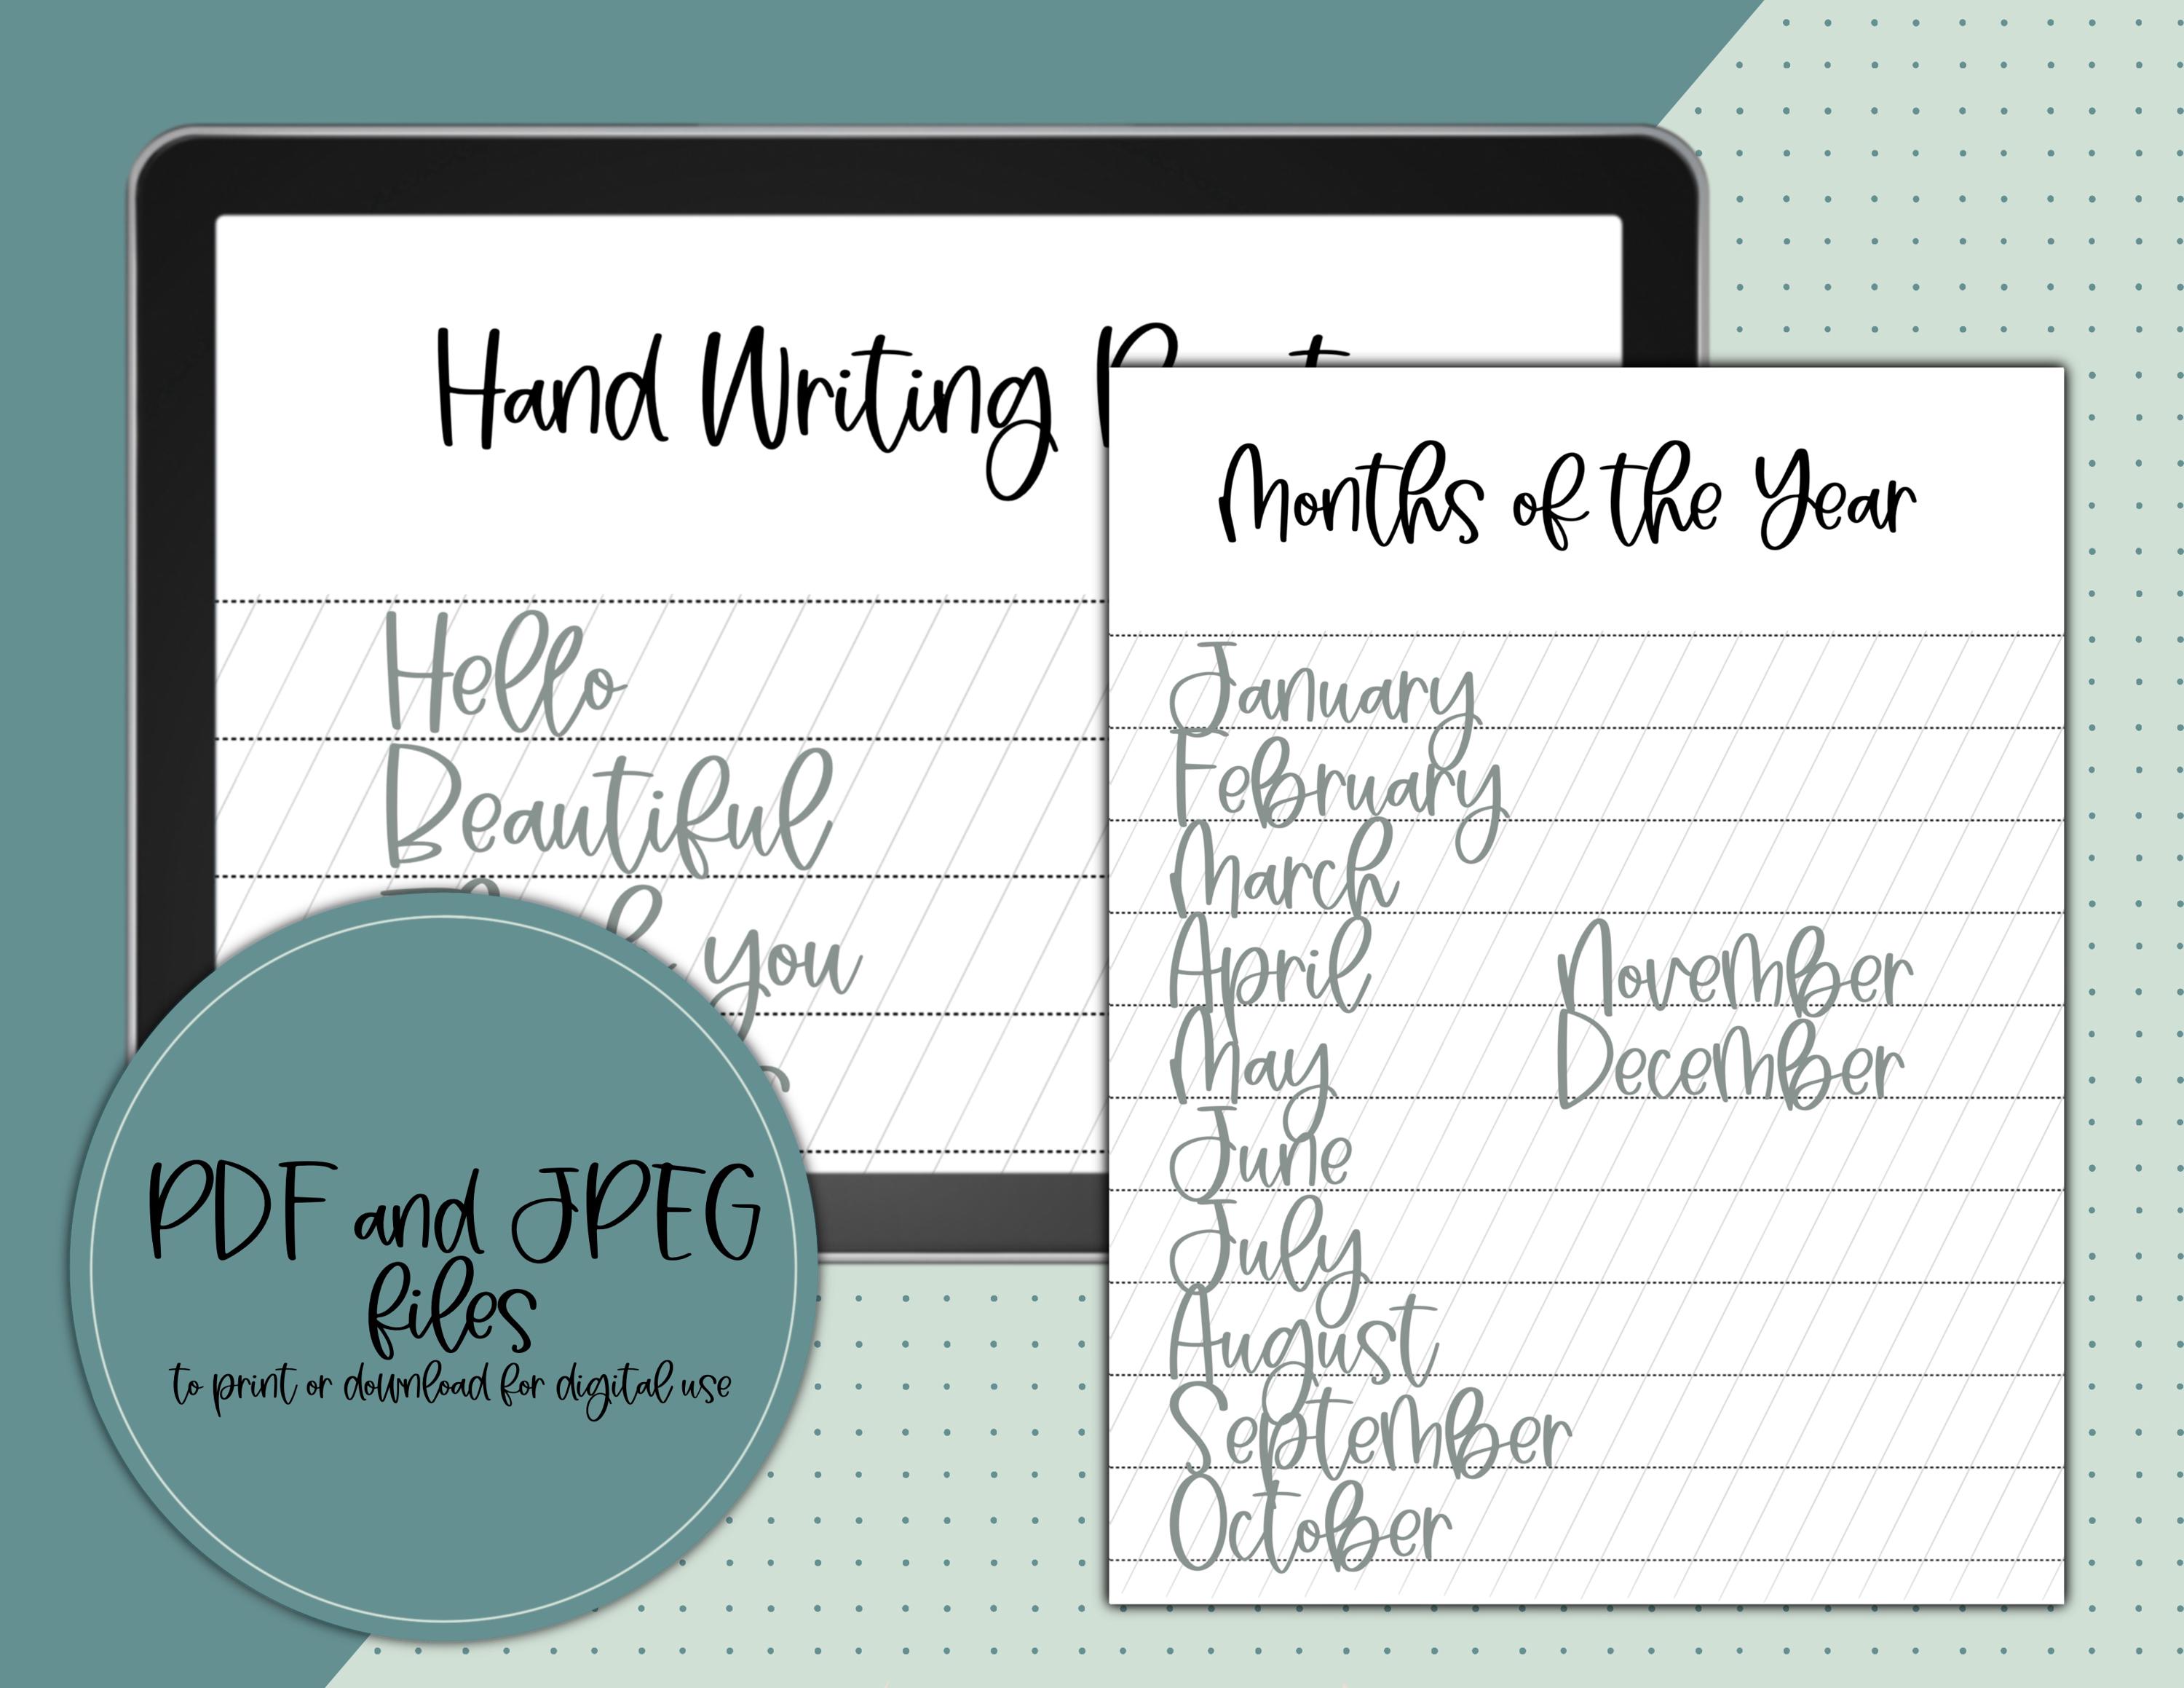 Hand Writing
Hello
Beautiful
you
Months of the Year
January
February
March
April
May
June
July
August
September
October
November
December
PDF and JPEG
files
to print or download for digital use